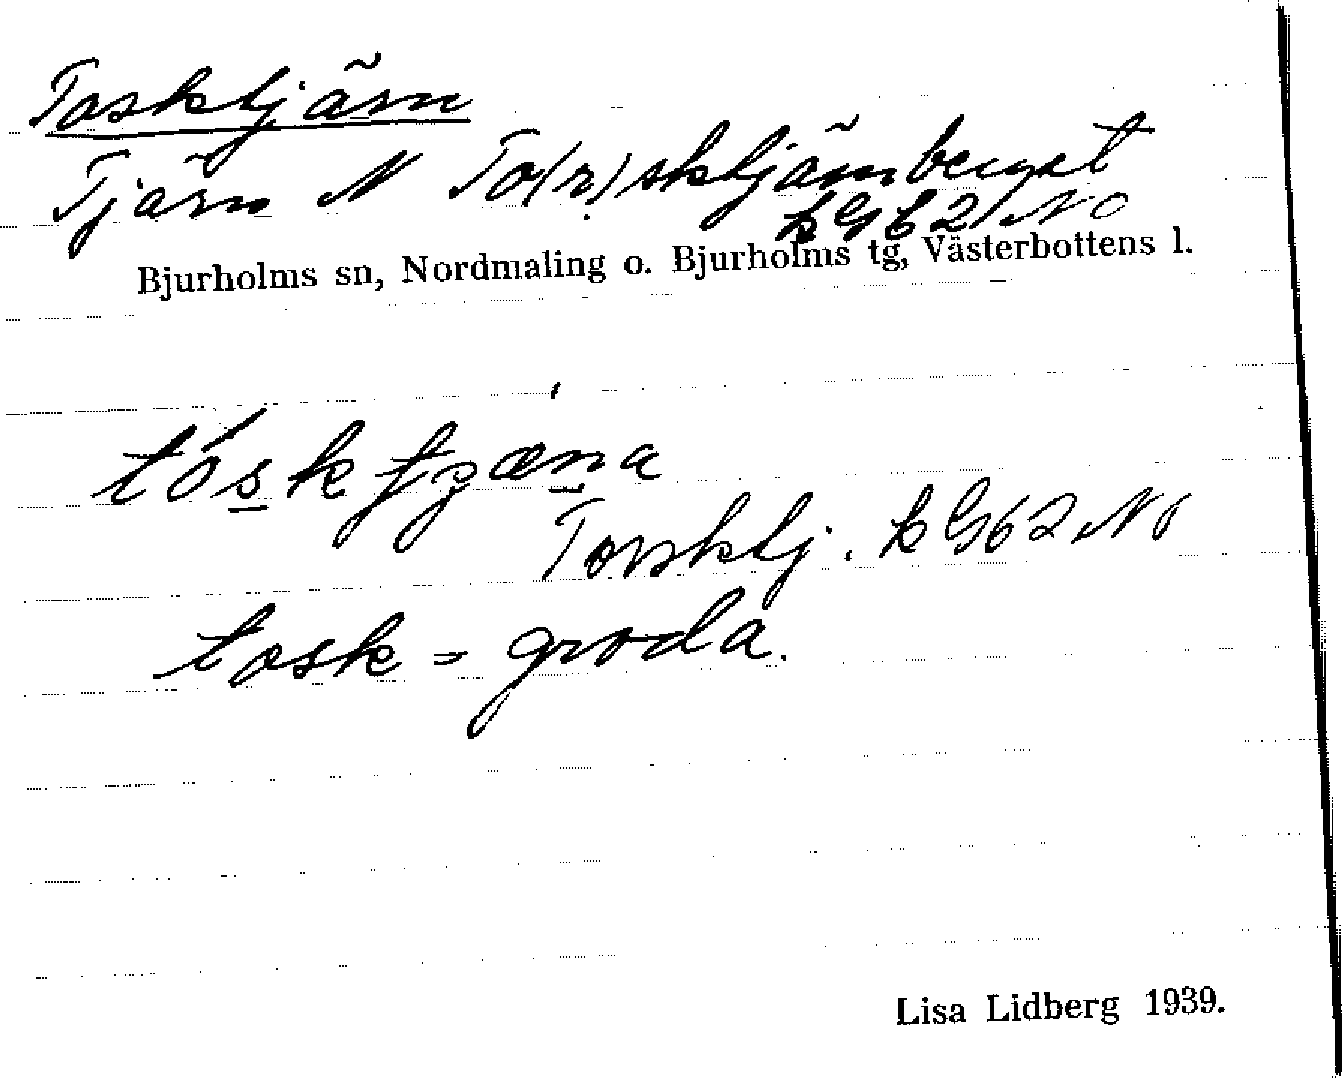 Tosktjärn
Tjärn N To(r)sktjärnberget
k G62 NO
Bjurholms sn, Nordmaling o. Bjurholms tg, Västerbottens l.
Torsktj. k G62 NO
tosk = groda.
Lisa Lidberg 1939.